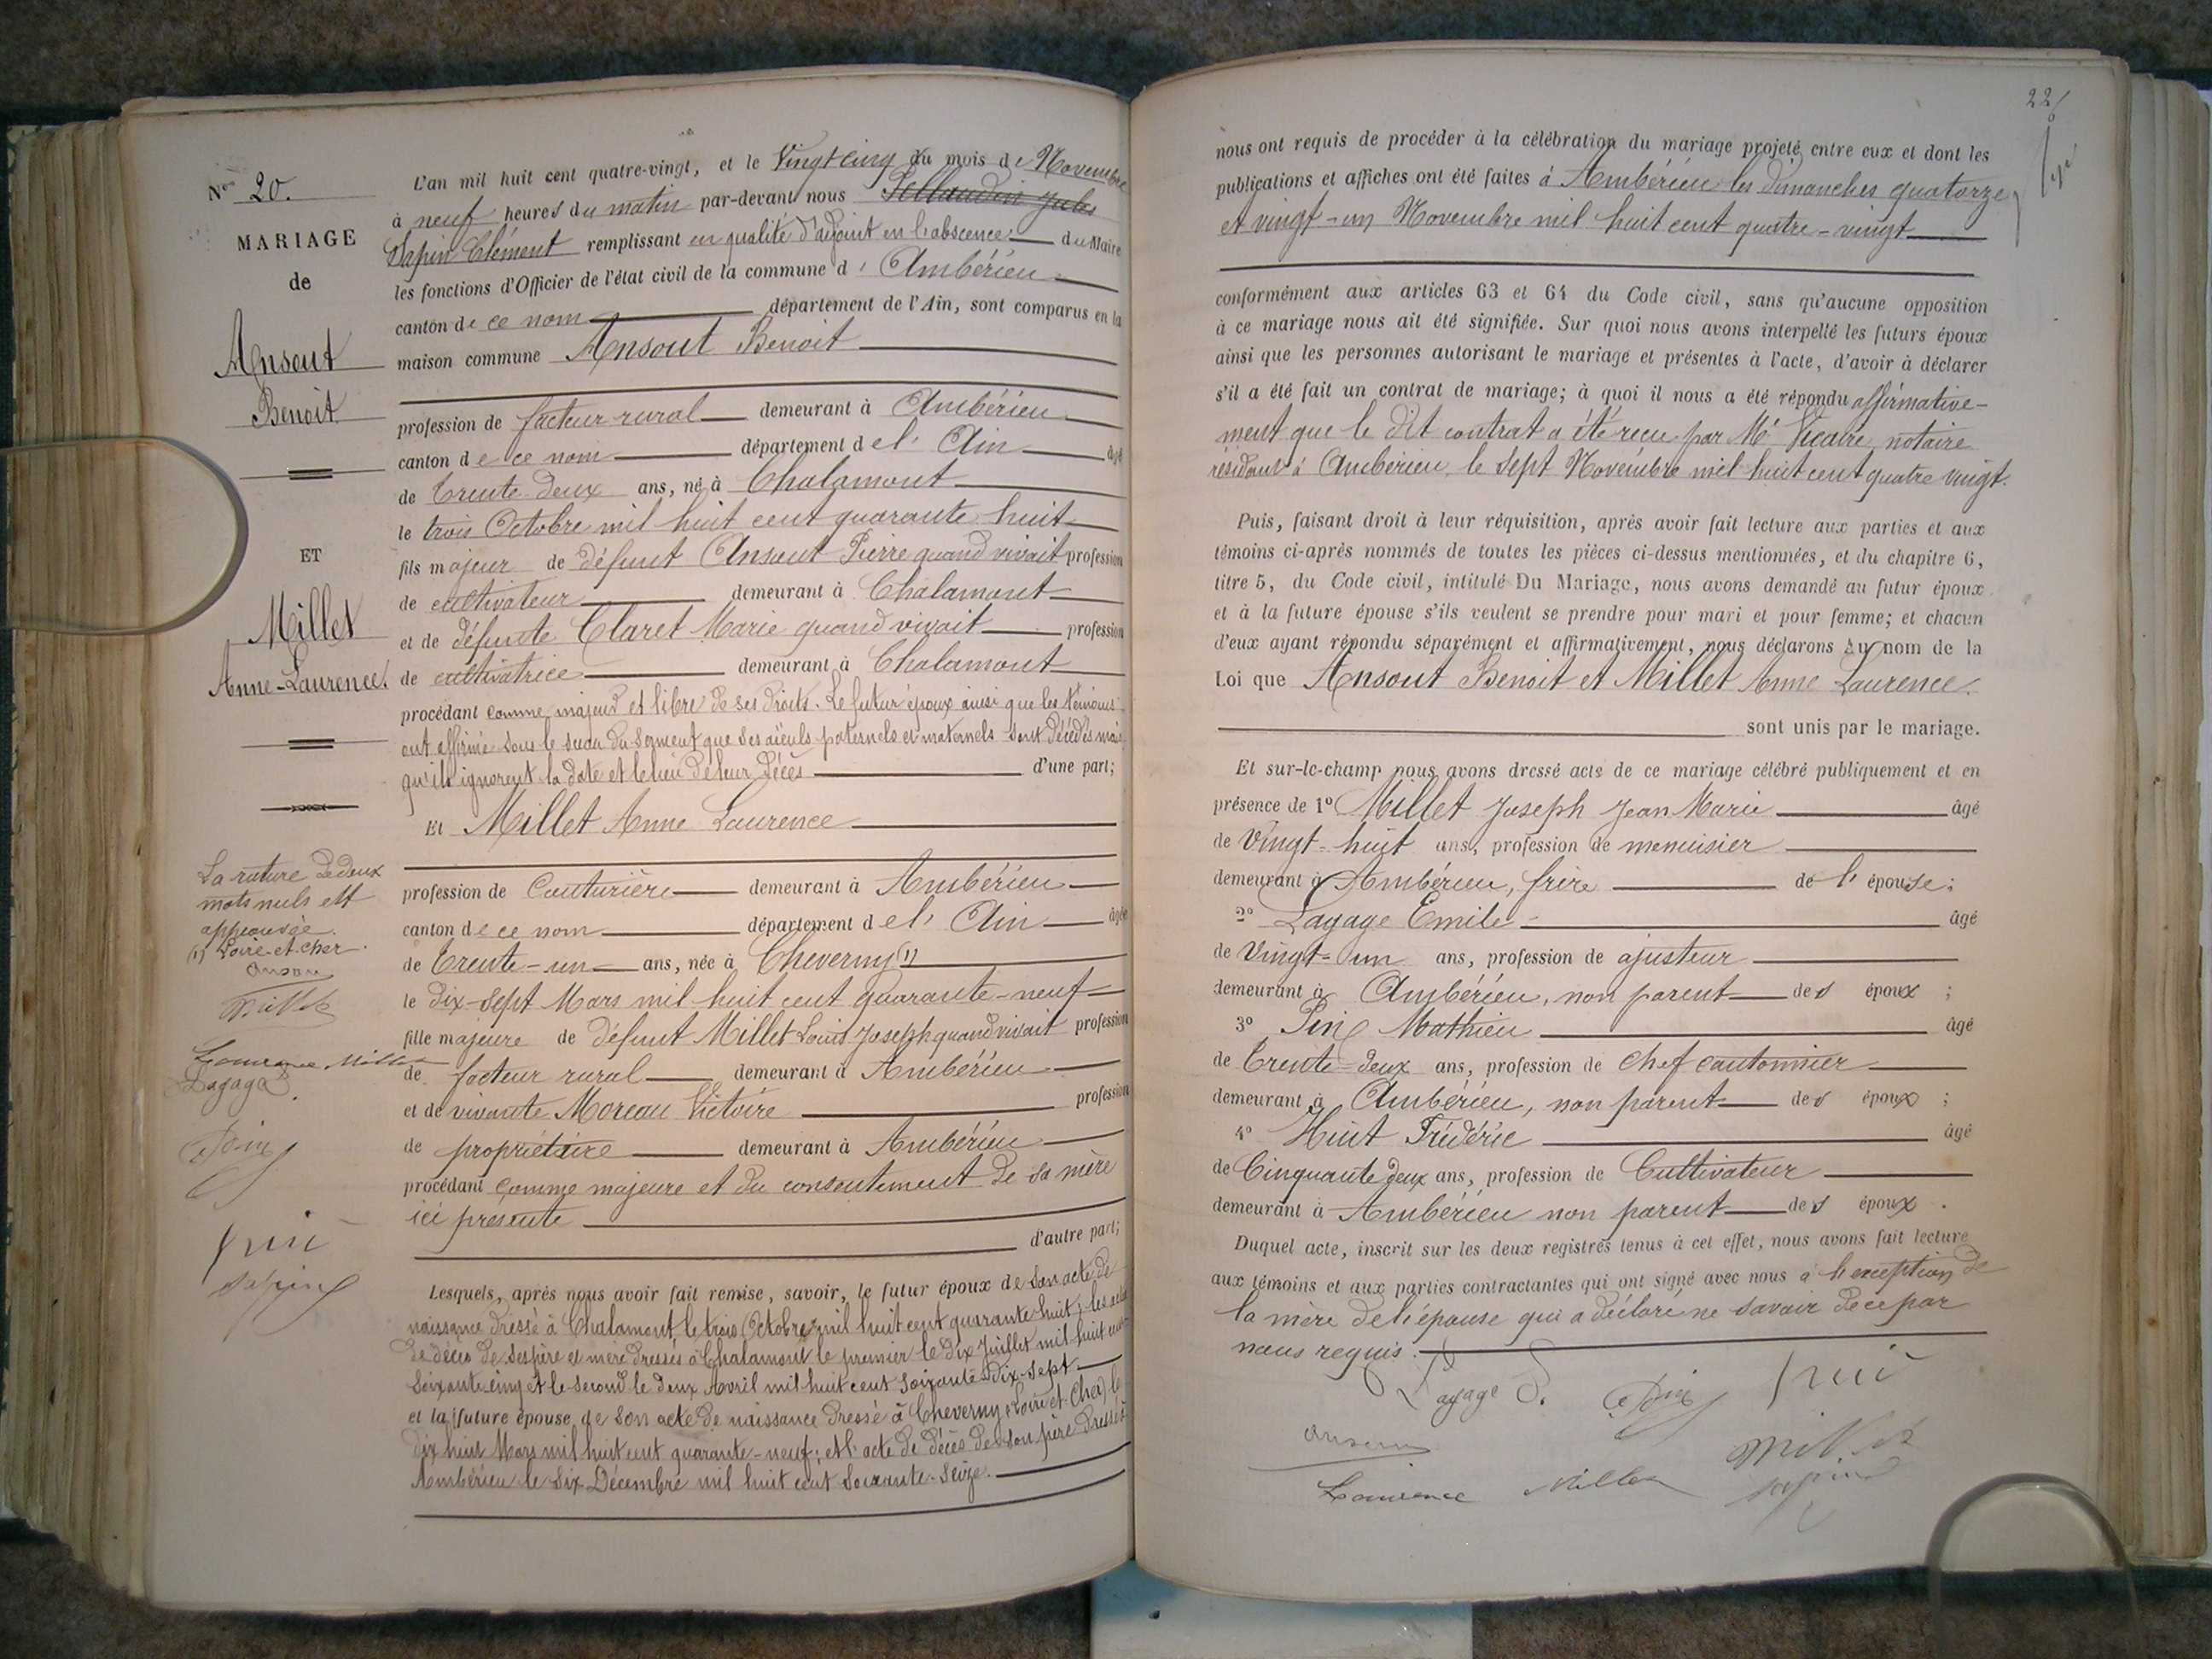 N° 20.
MARIAGE
de
Ansout
Benoit
ET
Millet
Anne-Laurence.
La rature de deux
mots nuls est
approuvée.
(1) Loire-et-Cher.
Laurence Millet
Lagage
Sapin
L'an mil huit cent quatre-vingt, et le Vingt cinq du mois de Novembre
à neuf heures du matin par-devant nous Jules
Sapin Clément remplissant en qualité d'adjoint en l'abscence du Maire
les fonctions d'Officier de l'état civil de la commune d' Ambérieu
canton de ce nom département de l'Ain, sont comparus en la
maison commune Ansout Benoit
profession de facteur rural demeurant à Ambérieu
canton de ce nom département de l' Ain âgé
de Trente deux ans, né à Chalamont
le trois Octobre mil huit cent quarante huit
fils majeur de défunt Ansout Pierre quand vivait profession
de cultivateur demeurant à Chalamont
et de défunte Claret Marie quand vivait profession
de cultivatrice demeurant à Chalamont
procédant comme majeur et libre de ses droits. Le futur époux ainsi que les témoins
ont affirmé sous le sceau du serment que ses aïeuls paternels et maternels sont décédés mais
qu'ils ignorent la date et le lieu de leur décès d'une part;
Et Millet Anne Laurence
profession de Couturière demeurant à Ambérieu
canton de ce nom département de l' Ain âgée
de Trente-un ans, née à Cheverny (1)
le dix-sept Mars mil huit cent quarante-neuf
fille majeure de défunt Millet Louis Joseph quand vivait profession
de facteur rural demeurant à Ambérieu
et de vivante Moreau Victoire profession
de propriétaire demeurant à Ambérieu
procédant comme majeure et du consentement de sa mère
ici présente
d'autre part;
Lesquels, après nous avoir fait remise, savoir, le futur époux de son acte de
naissance dressé à Chalamont, le trois Octobre mil huit cent quarante huit; les actes
de décès de ses père et mère dressés à Chalamont le premier le dix Juillet mil huit cent
soixante cinq et le second le deux Avril mil huit cent soixante Dix-sept
et la future épouse de son acte de naissance dressé à Cheverny (Loire et Cher) le
dix huit Mars mil huit cent quarante-neuf; et l'acte de décès de son père dressé à
Ambérieu le six Décembre mil huit cent soixante-seize.
22
nous ont requis de procéder à la célébration du mariage projeté entre eux et dont les
publications et affiches ont été faites à Ambérieu les dimanches quatorze
et vingt-un Novembre mil huit cent quatre-vingt
conformément aux articles 63 et 64 du Code civil, sans qu'aucune opposition
à ce mariage nous ait été signifiée. Sur quoi nous avons interpellé les futurs époux
ainsi que les personnes autorisant le mariage et présentes à l'acte, d'avoir à déclarer
s'il a été fait un contrat de mariage; à quoi il nous a été répondu affirmative-
ment que le dit contrat a été reçu par Me Vicaire notaire
résidant à Ambérieu le sept Novembre mil huit cent quatre vingt.
Puis, faisant droit à leur réquisition, après avoir fait lecture aux parties et aux
témoins ci-après nommés de toutes les pièces ci-dessus mentionnées, et du chapitre 6,
titre 5, du Code civil, intitulé Du Mariage, nous avons demandé au futur époux
et à la future épouse s'ils veulent se prendre pour mari et pour femme; et chacun
d'eux ayant répondu séparément et affirmativement, nous déclarons au nom de la
Loi que Ansout Benoit et Millet Anne Laurence.
sont unis par le mariage.
Et sur-le-champ nous avons dressé acte de ce mariage célébré publiquement et en
présence de 1° Millet Joseph Jean Marie âgé
de Vingt-huit ans, profession de menuisier
demeurant à Ambérieu, frère de l' épouse;
2° Lagage Emile âgé
de Vingt-un ans, profession de ajusteur
demeurant à Ambérieu, non parent des époux;
3° Mathieu âgé
de Trente-deux ans, profession de chef cantonnier
demeurant à Ambérieu, non parent des époux;
4° Huit Frédéric âgé
de Cinquante deux ans, profession de Cultivateur
demeurant à Ambérieu non parent des époux.
Duquel acte, inscrit sur les deux registres tenus à cet effet, nous avons fait lecture
aux témoins et aux parties contractantes qui ont signé avec nous à l'exception de
la mère de l'épouse qui a déclaré ne savoir de ce par
nous requis.
Lagage E.
Millet
Laurence Millet
Sapin